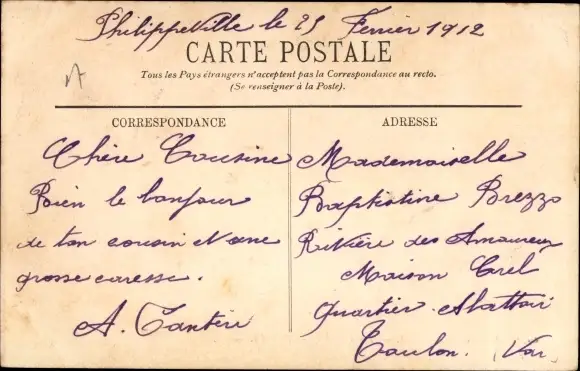 Philippeville le 25 Fevrier 1912
CARTE POSTALE
Tous les Pays étrangers n'acceptent pas la Correspondance au recto.
(Se renseigner à la Poste).
CORRESPONDANCE
Chère Cousine
Bien le bonjour
de ton cousin et une
grosse caresse.
A.
ADRESSE
Mademoiselle
Baptistine Brezzo
Rivière des Amoureux
Maison Crel
Quartier Abattoir
Toulon. (Var)